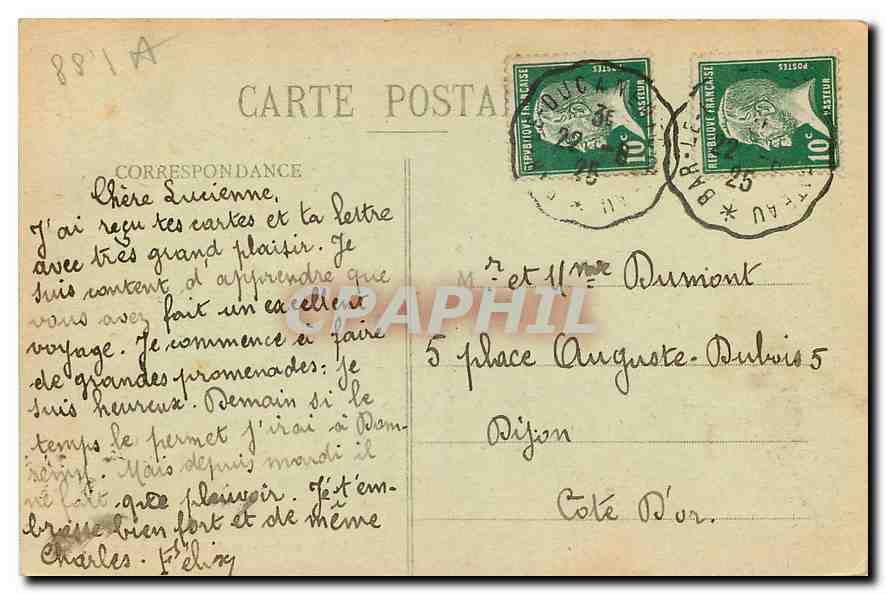 881 A
CARTE POSTA
CORRESPONDANCE
Chère Lucienne,
J'ai reçu tes cartes et ta lettre
avec très grand plaisir. Je
suis content d'apprendre que
vous avez fait un excellent
voyage. Je commence à faire
de grandes promenades: je
suis heureux. Demain si le
temps le permet j'irai à Dom-
rémy. Mais depuis mardi il
ne fait que pleuvoir. Je t'em-
brasse bien fort et de même
Charles. Félix
REPUBLIQUE FRANÇAISE
10c
22 -8
25
BAR-LE-
22
25
REPUBLIQUE FRANÇAISE
POSTES
PASTEUR
10c
Mr et Mme Dumont
5 place Auguste-Dubois 5
Dijon
Côte D'or.
CPAPHIL